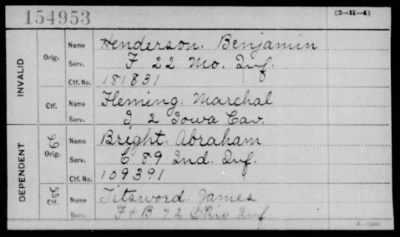 154953 (3-H-4)
INVALID
Orig. Name Henderson, Benjamin
Serv. F 22 Mo. Inf.
Ctf. No. 181831
Ctf. Name Fleming, Marchal
Serv. I 2 Iowa Cav.
DEPENDENT
Orig. Name Bright, Abraham
Serv. E 89 Ind. Inf.
Ctf. No. 109391
Ctf. Name Titsword, James
Serv. F & B 72 Ohio Inf